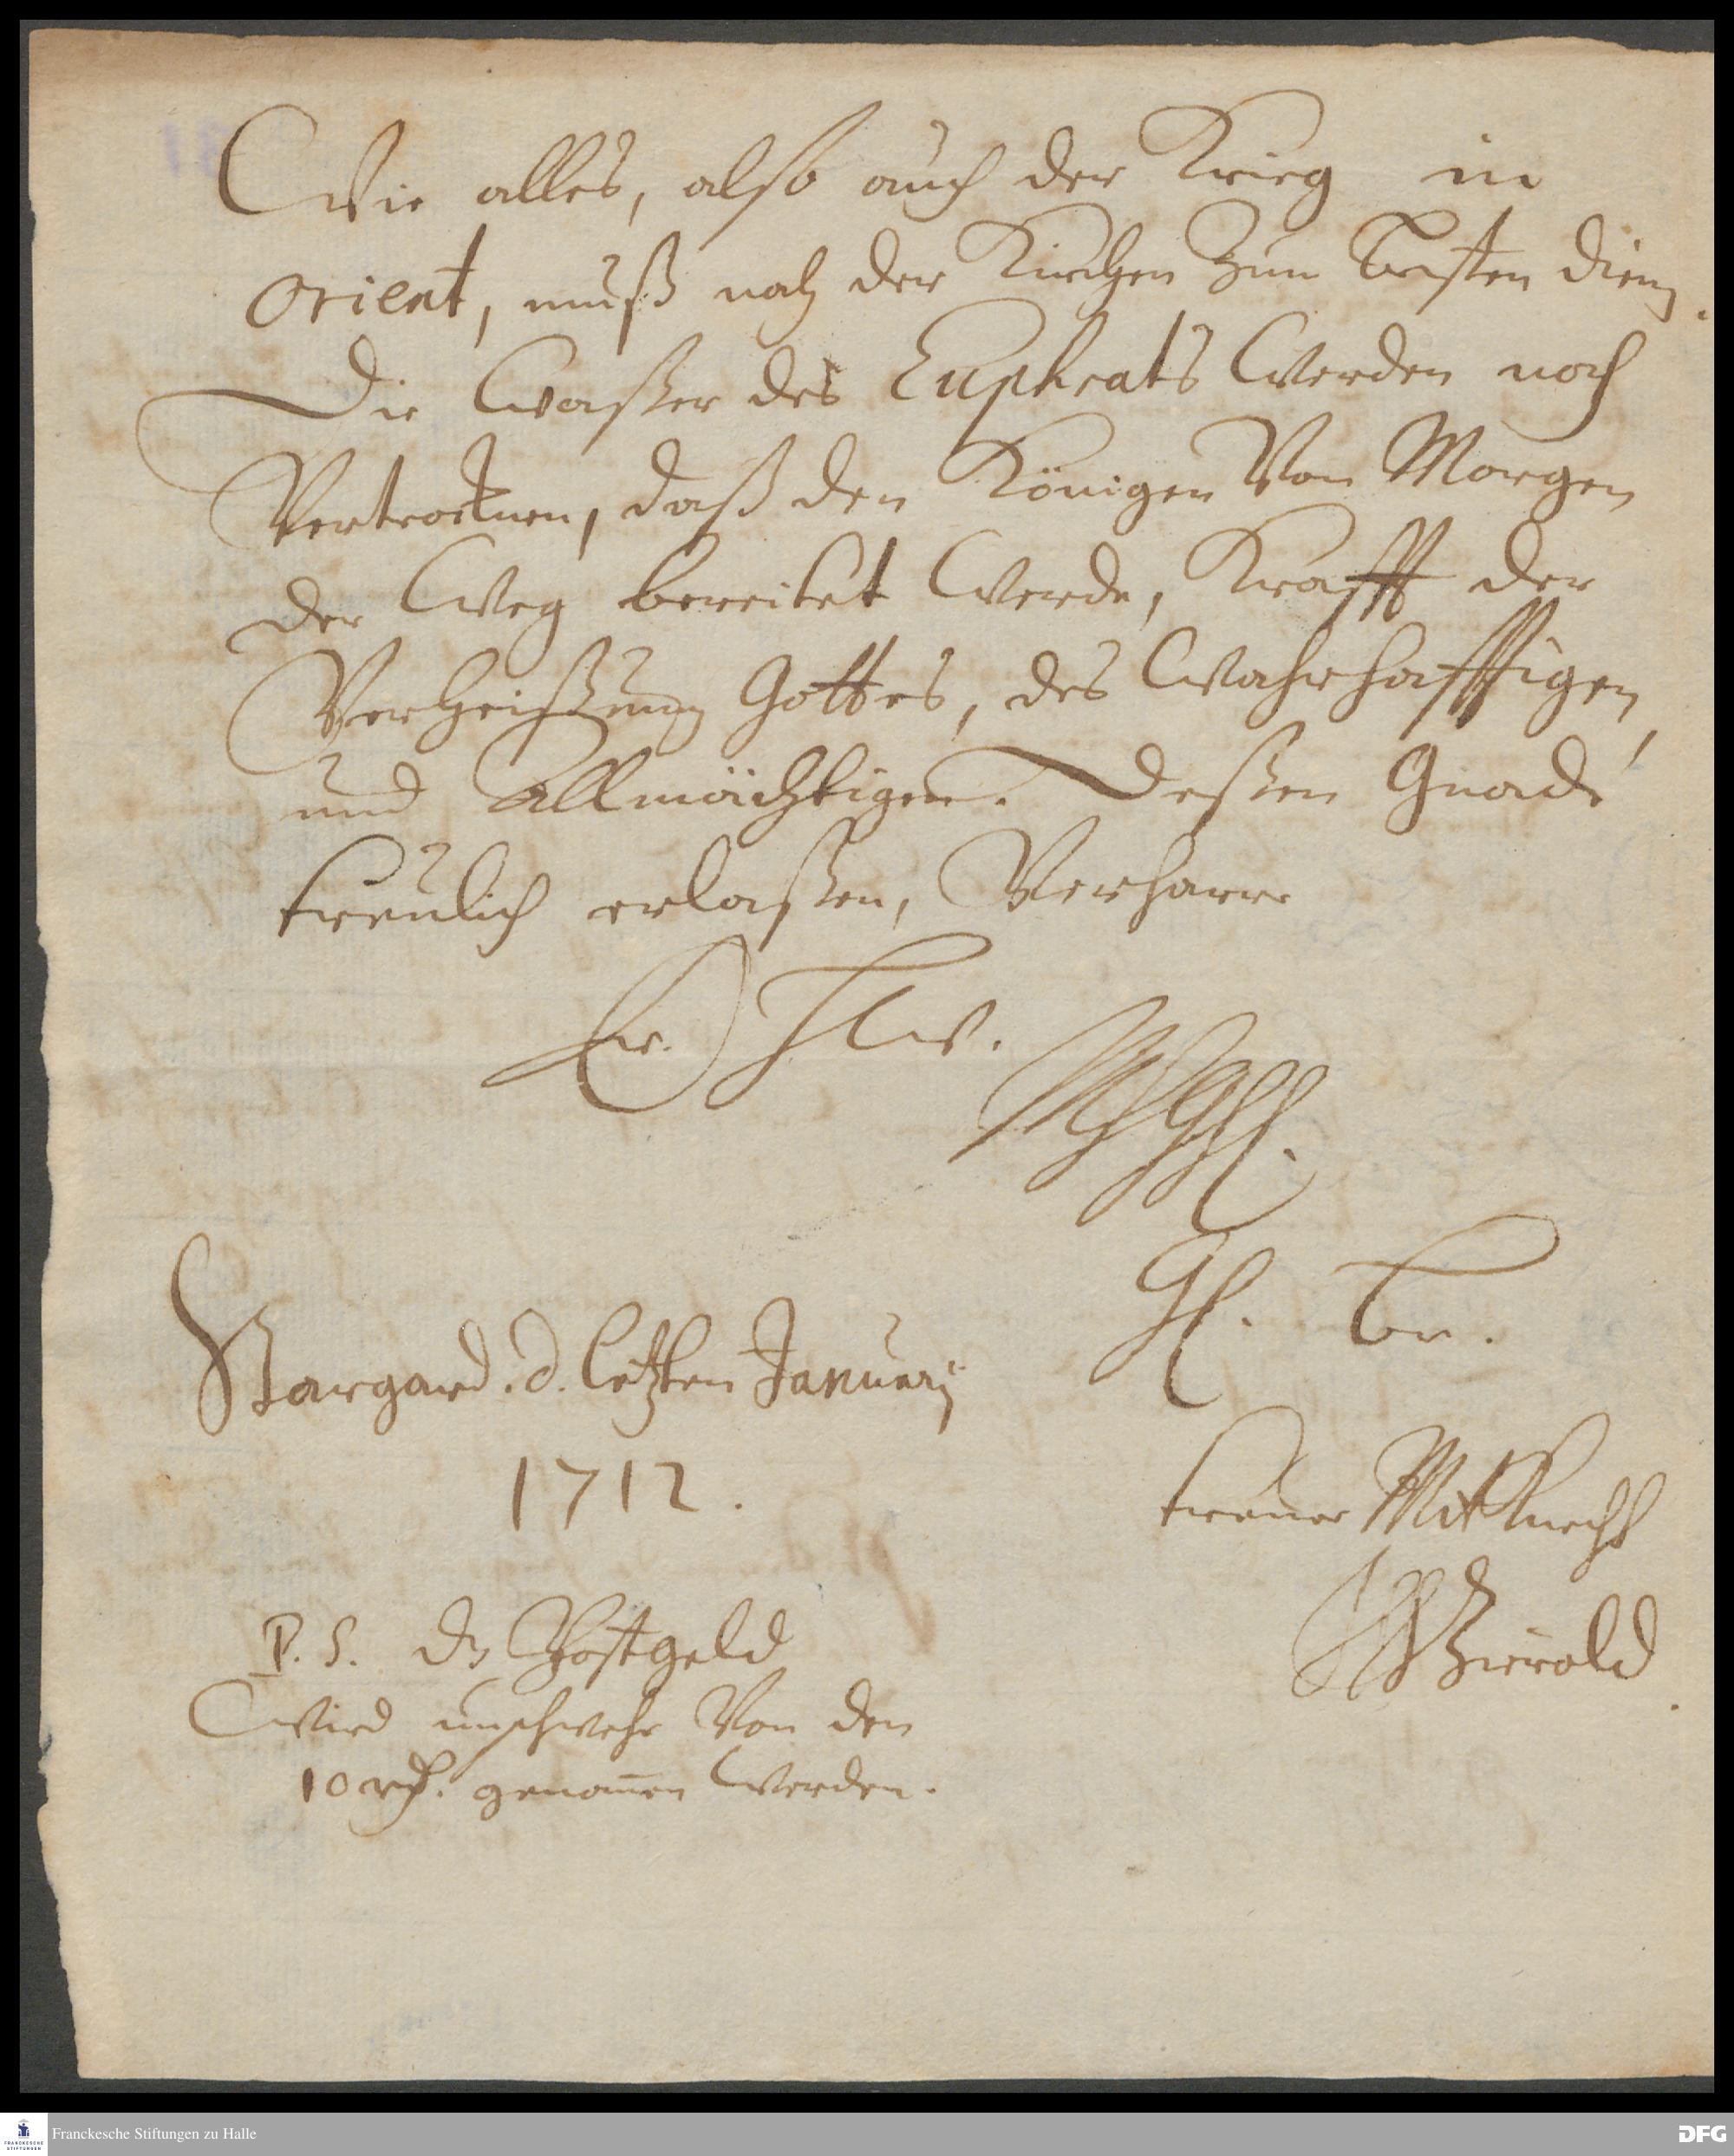 Wie alles, also auch der Krieg in
Orient, muß noch der Kirchen zum besten dienen.
Die Waßer des Euphrats werden noch
Vertrocknen, daß den Königen Von Morgen
der Weg bereitet werde, Krafft der
Verheißung Gottes, des wahrhafftigen,
und Allmächtigen. Deßen Gnade
treulich erlaßen, Verharre
Stargard. d. letzten Januarij
1712.
treuer MitKnecht
Zierold
P. S. Das Postgeld
wird unschwehr Von den
10 rth. genom̄en werden.
Franckesche Stiftungen zu Halle
DFG